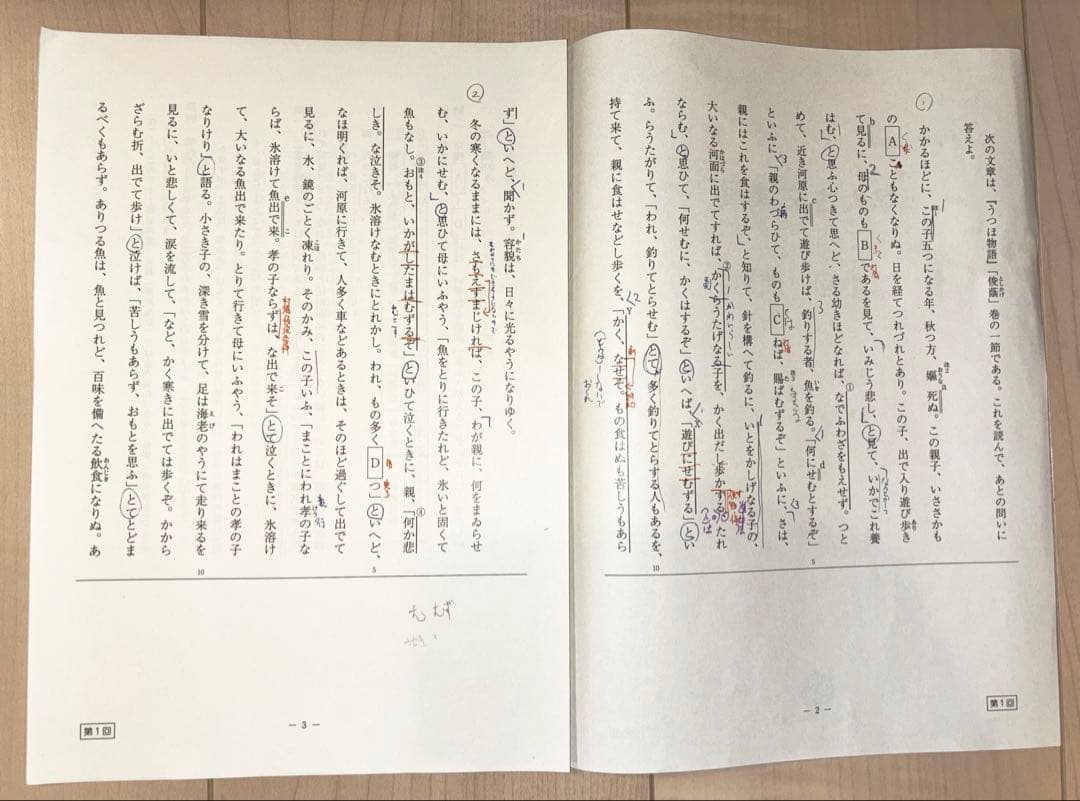 次の文章は、『うつほ物語』「俊蔭」巻の一節である。これを読んで、あとの問いに
答えよ。
①
かかるほどに、この子五つになる年、秋つ方、嫗死ぬ。この親子、いささかも
の A こともなくなりぬ。日を経てつれづれとあり。この子、出で入り遊び歩き
て見るに、母のものも B であるを見て、いみじう悲し、と見て、いかでこれ養
はむ、と思ふ心つきて思へど、さる幼きほどなれば、なでふわざをもえせず。つと
めて、近き河原に出でて遊び歩けば、釣りする者、魚を釣る。「何にせむとするぞ」
といふに、「親のわづらひて、ものも C ねば、賜ばむずるぞ」といふに、さは、
親にはこれを食はするぞ、と知りて、針を構へて釣るに、いとをかしげなる子の、
大いなる河面に出でてすれば、「かくらうたげなる子を、かく出だし歩かする、たれ
ならむ」と思ひて、「何せむに、かくはするぞ」といへば、「遊びにせむずる」とい
ふ。らうたがりて、「われ、釣りてとらせむ」とて、多く釣りてとらする人もあるを、
持て来て、親に食はせなどし歩くを、「かく、なせそ。もの食はぬも苦しうもあら
5
10
－2－
第1回
ず」といへど、聞かず。容貌は、日々に光るやうになりゆく。
②
冬の寒くなるままには、さもえすまじければ、この子、「わが親に、何をまゐらせ
む、いかにせむ」と思ひて母にいふやう、「魚をとりに行きたれど、氷いと固くて
魚もなし。おもと、いかがしたまはむずるぞ」といひて泣くときに、親、「何か悲
しき。な泣きそ。氷溶けなむときにとれかし。われ、もの多く D つ」といへど、
なほ明くれば、河原に行きて、人多く車などあるときは、そのほど過ぐして出でて
見るに、水、鏡のごとく凍れり。そのかみ、この子いふ、「まことにわれ孝の子な
らば、氷溶けて魚出で来。孝の子ならずは、な出で来そ」とて泣くときに、氷溶け
て、大いなる魚出で来たり。とりて行きて母にいふやう、「われはまことの孝の子
なりけり」と語る。小さき子の、深き雪を分けて、足は海老のやうにて走り来るを
見るに、いと悲しくて、涙を流して、「など、かく寒きに出でては歩くぞ。かから
ざらむ折、出でて歩け」と泣けば、「苦しうもあらず、おもとを思ふ」とてとどま
るべくもあらず。ありつる魚は、魚と見つれど、百味を備へたる飲食になりぬ。あ
5
10
む むず
－3－
第1回